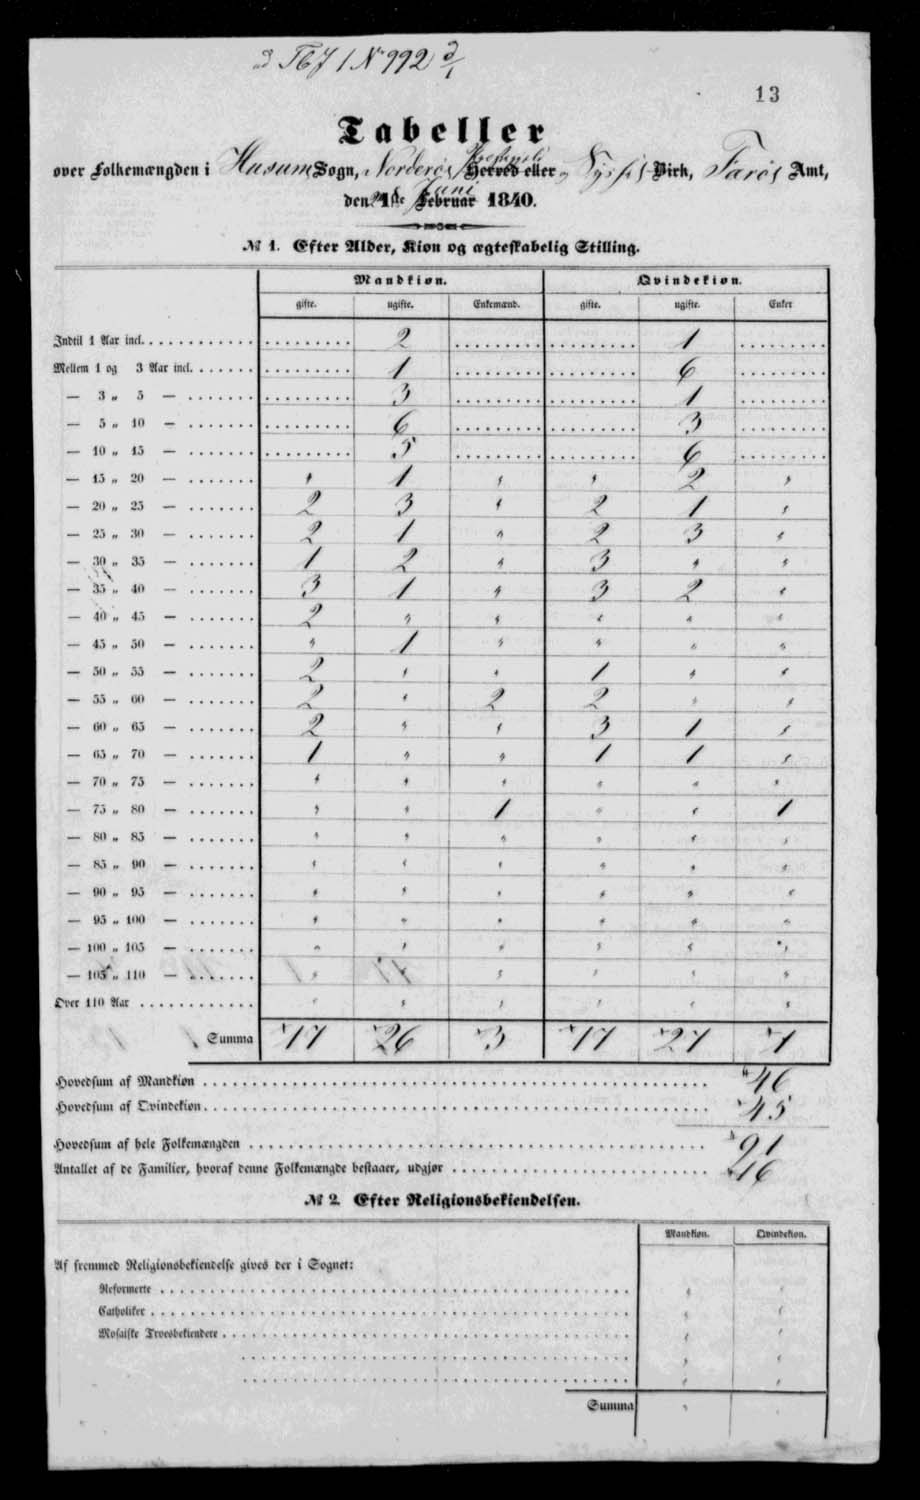 992
13
Tabeller
over Folkemængden i Husum Sogn, Norderøs Herred eller Syssels Birk, Farøs Amt,
den 1ste Februar Juni 1840.
№ 1. Efter Alder, Kiøn og ægteskabelig Stilling.
Mandkiøn. Qvindekiøn.
gifte. ugifte. Enkemænd. gifte. ugifte. Enker
Indtil 1 Aar incl. 2 1
Mellem 1 og 3 Aar incl. 1 6
— 3 „ 5 — 3 1
— 5 „ 10 — 6 3
— 10 „ 15 — 5 6
— 15 „ 20 — „ 1 „ „ 2 „
— 20 „ 25 — 2 3 „ 2 1 „
— 25 „ 30 — 2 1 „ 2 3 „
— 30 „ 35 — 1 2 „ 3 „ „
— 35 „ 40 — 3 1 „ 3 2 „
— 40 „ 45 — 2 „ „ „ „ „
— 45 „ 50 — „ 1 „ „ „ „
— 50 „ 55 — 2 „ „ 1 „ „
— 55 „ 60 — 2 „ 2 2 „ „
— 60 „ 65 — 2 „ „ 3 1 „
— 65 „ 70 — 1 „ „ 1 1 „
— 70 „ 75 — „ „ „ „ „ „
— 75 „ 80 — „ „ 1 „ „ 1
— 80 „ 85 — „ „ „ „ „ „
— 85 „ 90 — „ „ „ „ „ „
— 90 „ 95 — „ „ „ „ „ „
— 95 „ 100 — „ „ „ „ „ „
— 100 „ 105 — „ „ „ „ „ „
— 105 „ 110 — „ „ „ „ „
Over 110 Aar „ „ „ „ „ „
Summa 17 26 3 17 27 1
Hovedsum af Mandkiøn 46
Hovedsum af Qvindekiøn 45
Hovedsum af hele Folkemængden 91
Antallet af de Familier, hvoraf denne Folkemængde bestaaer, udgjør 16
№ 2. Efter Religionsbekiendelsen.
Mandkiøn. Qvindekiøn.
Af fremmed Religionsbekiendelse gives der i Sognet:
Reformerte „ „
Catholiker „ „
Mosaiske Troesbekiendere „ „
„ „
„ „
Summa „ „